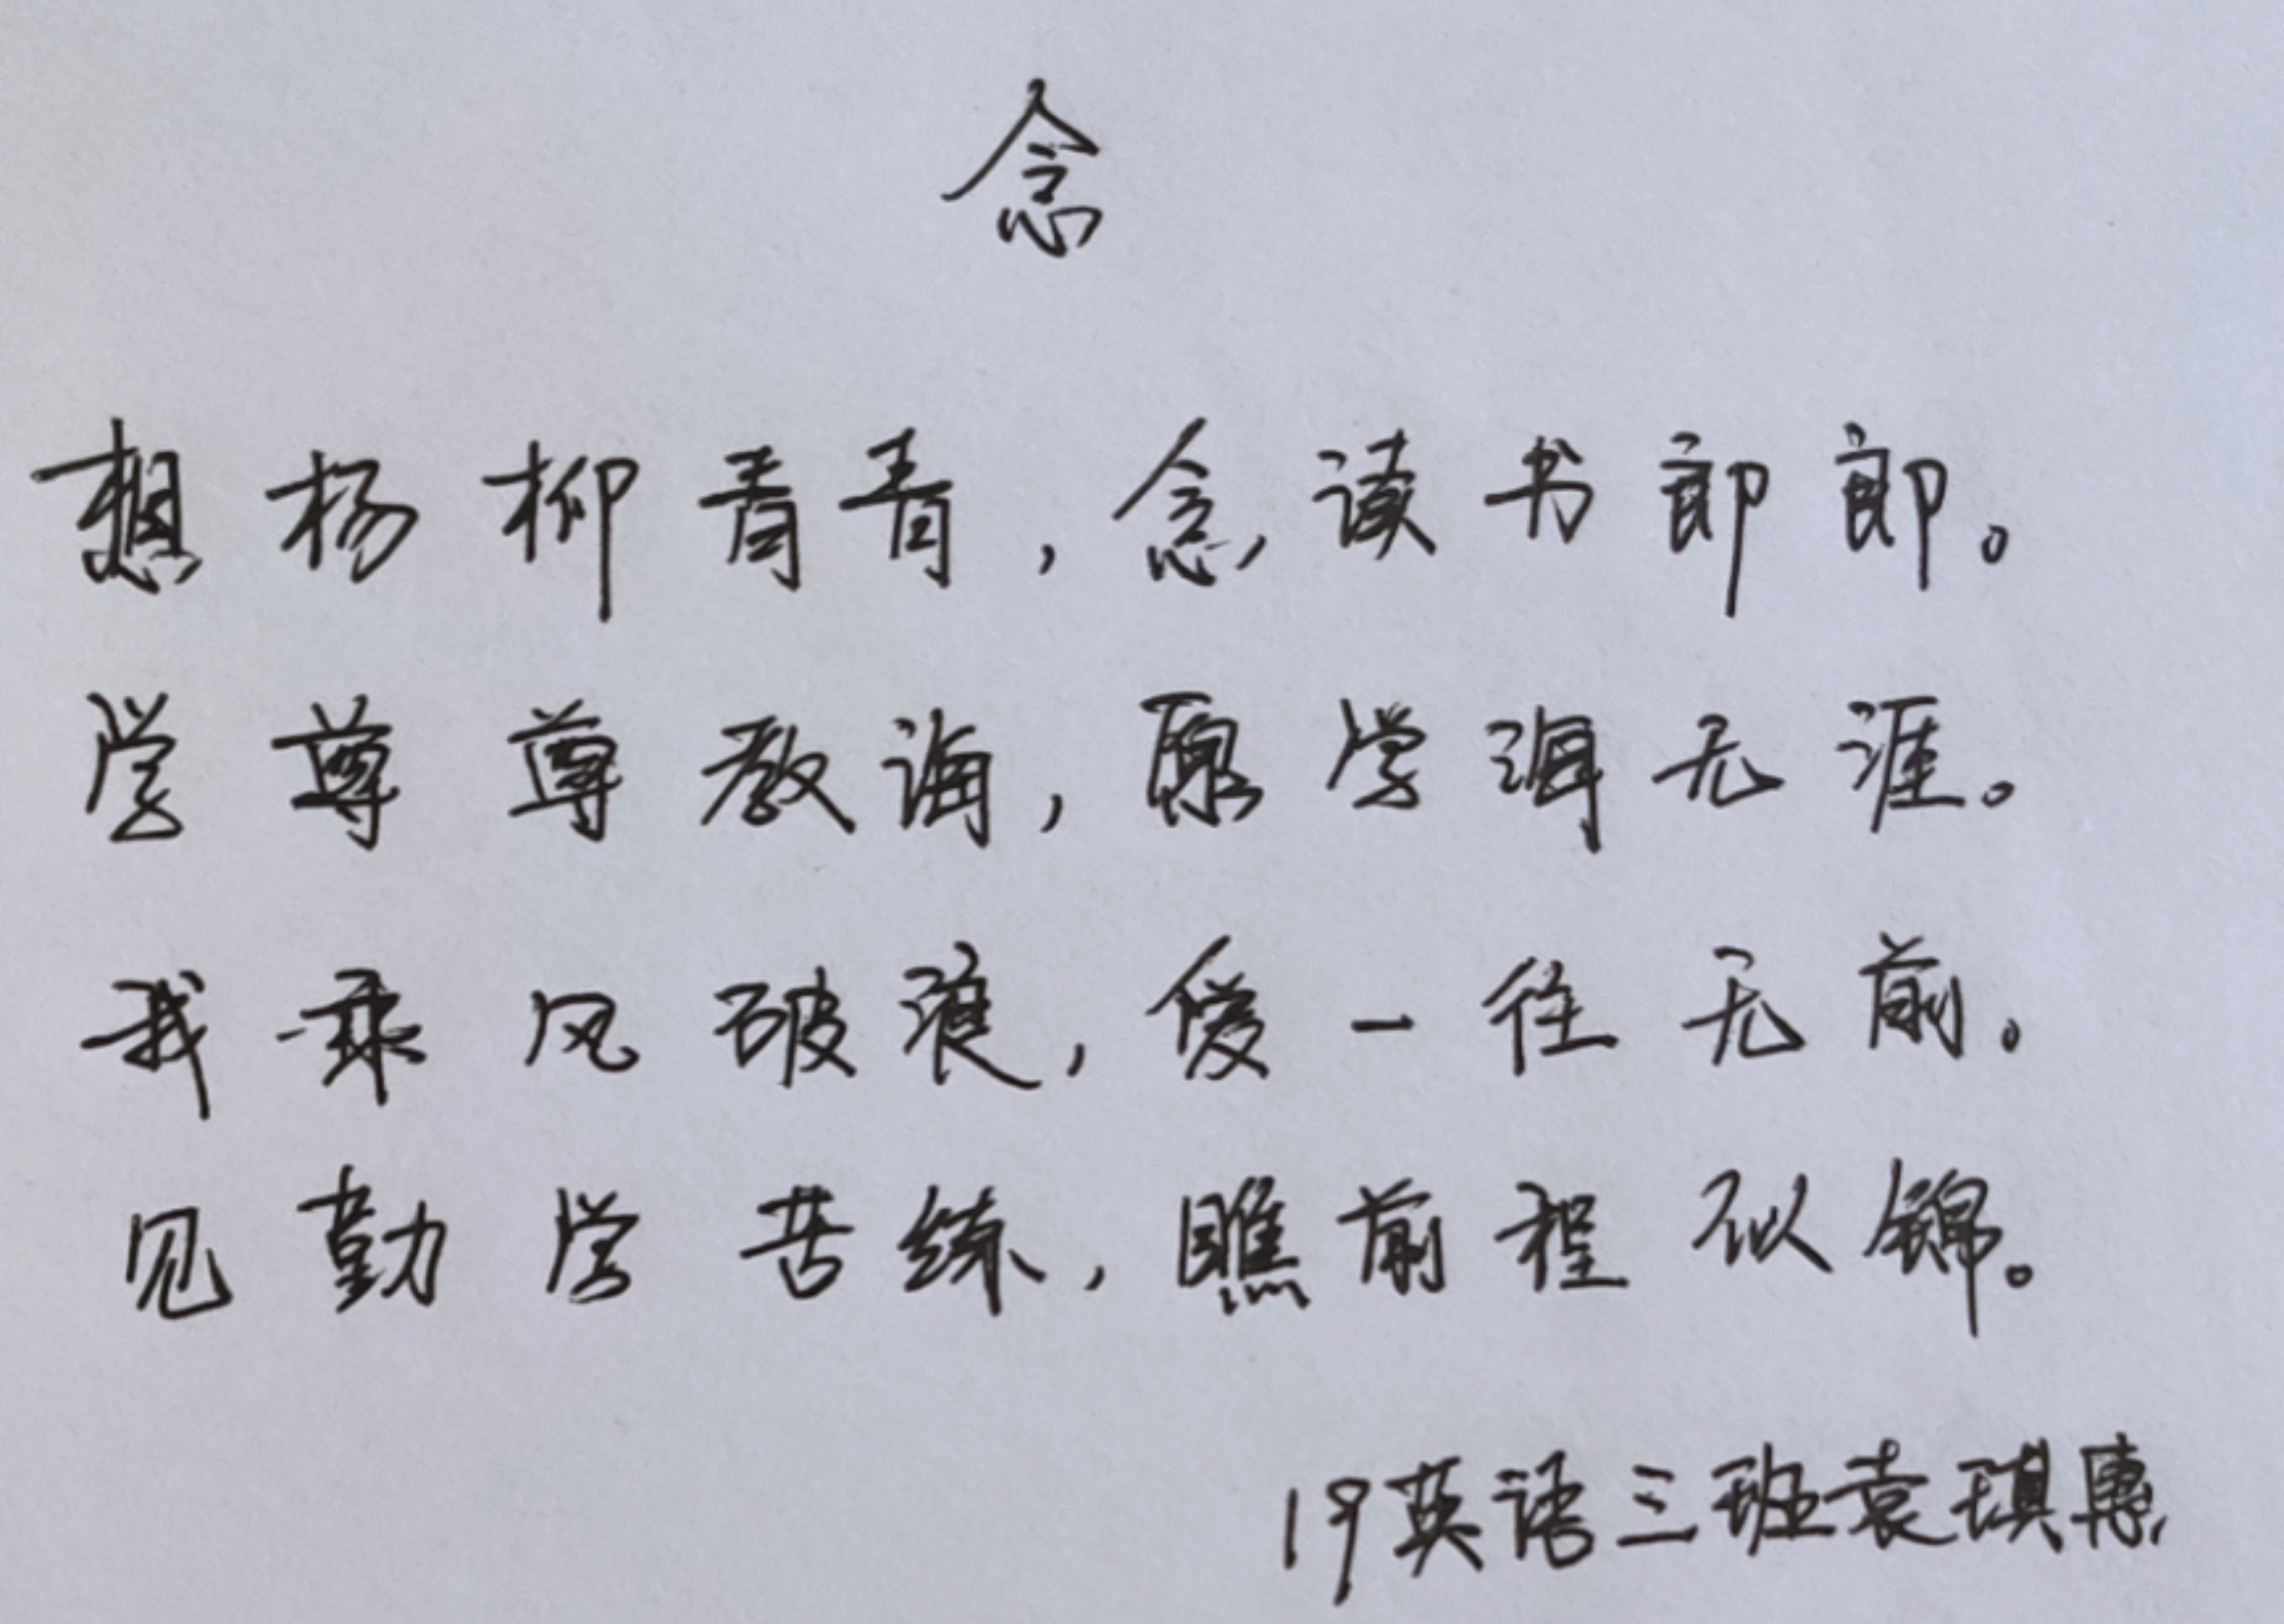 念
想杨柳青青,念读书郎郎。
学尊尊教诲,愿学海无涯。
我乘风破浪,一往无前。
见勤学苦练,瞧前程似锦。
19英语三班袁琪惠